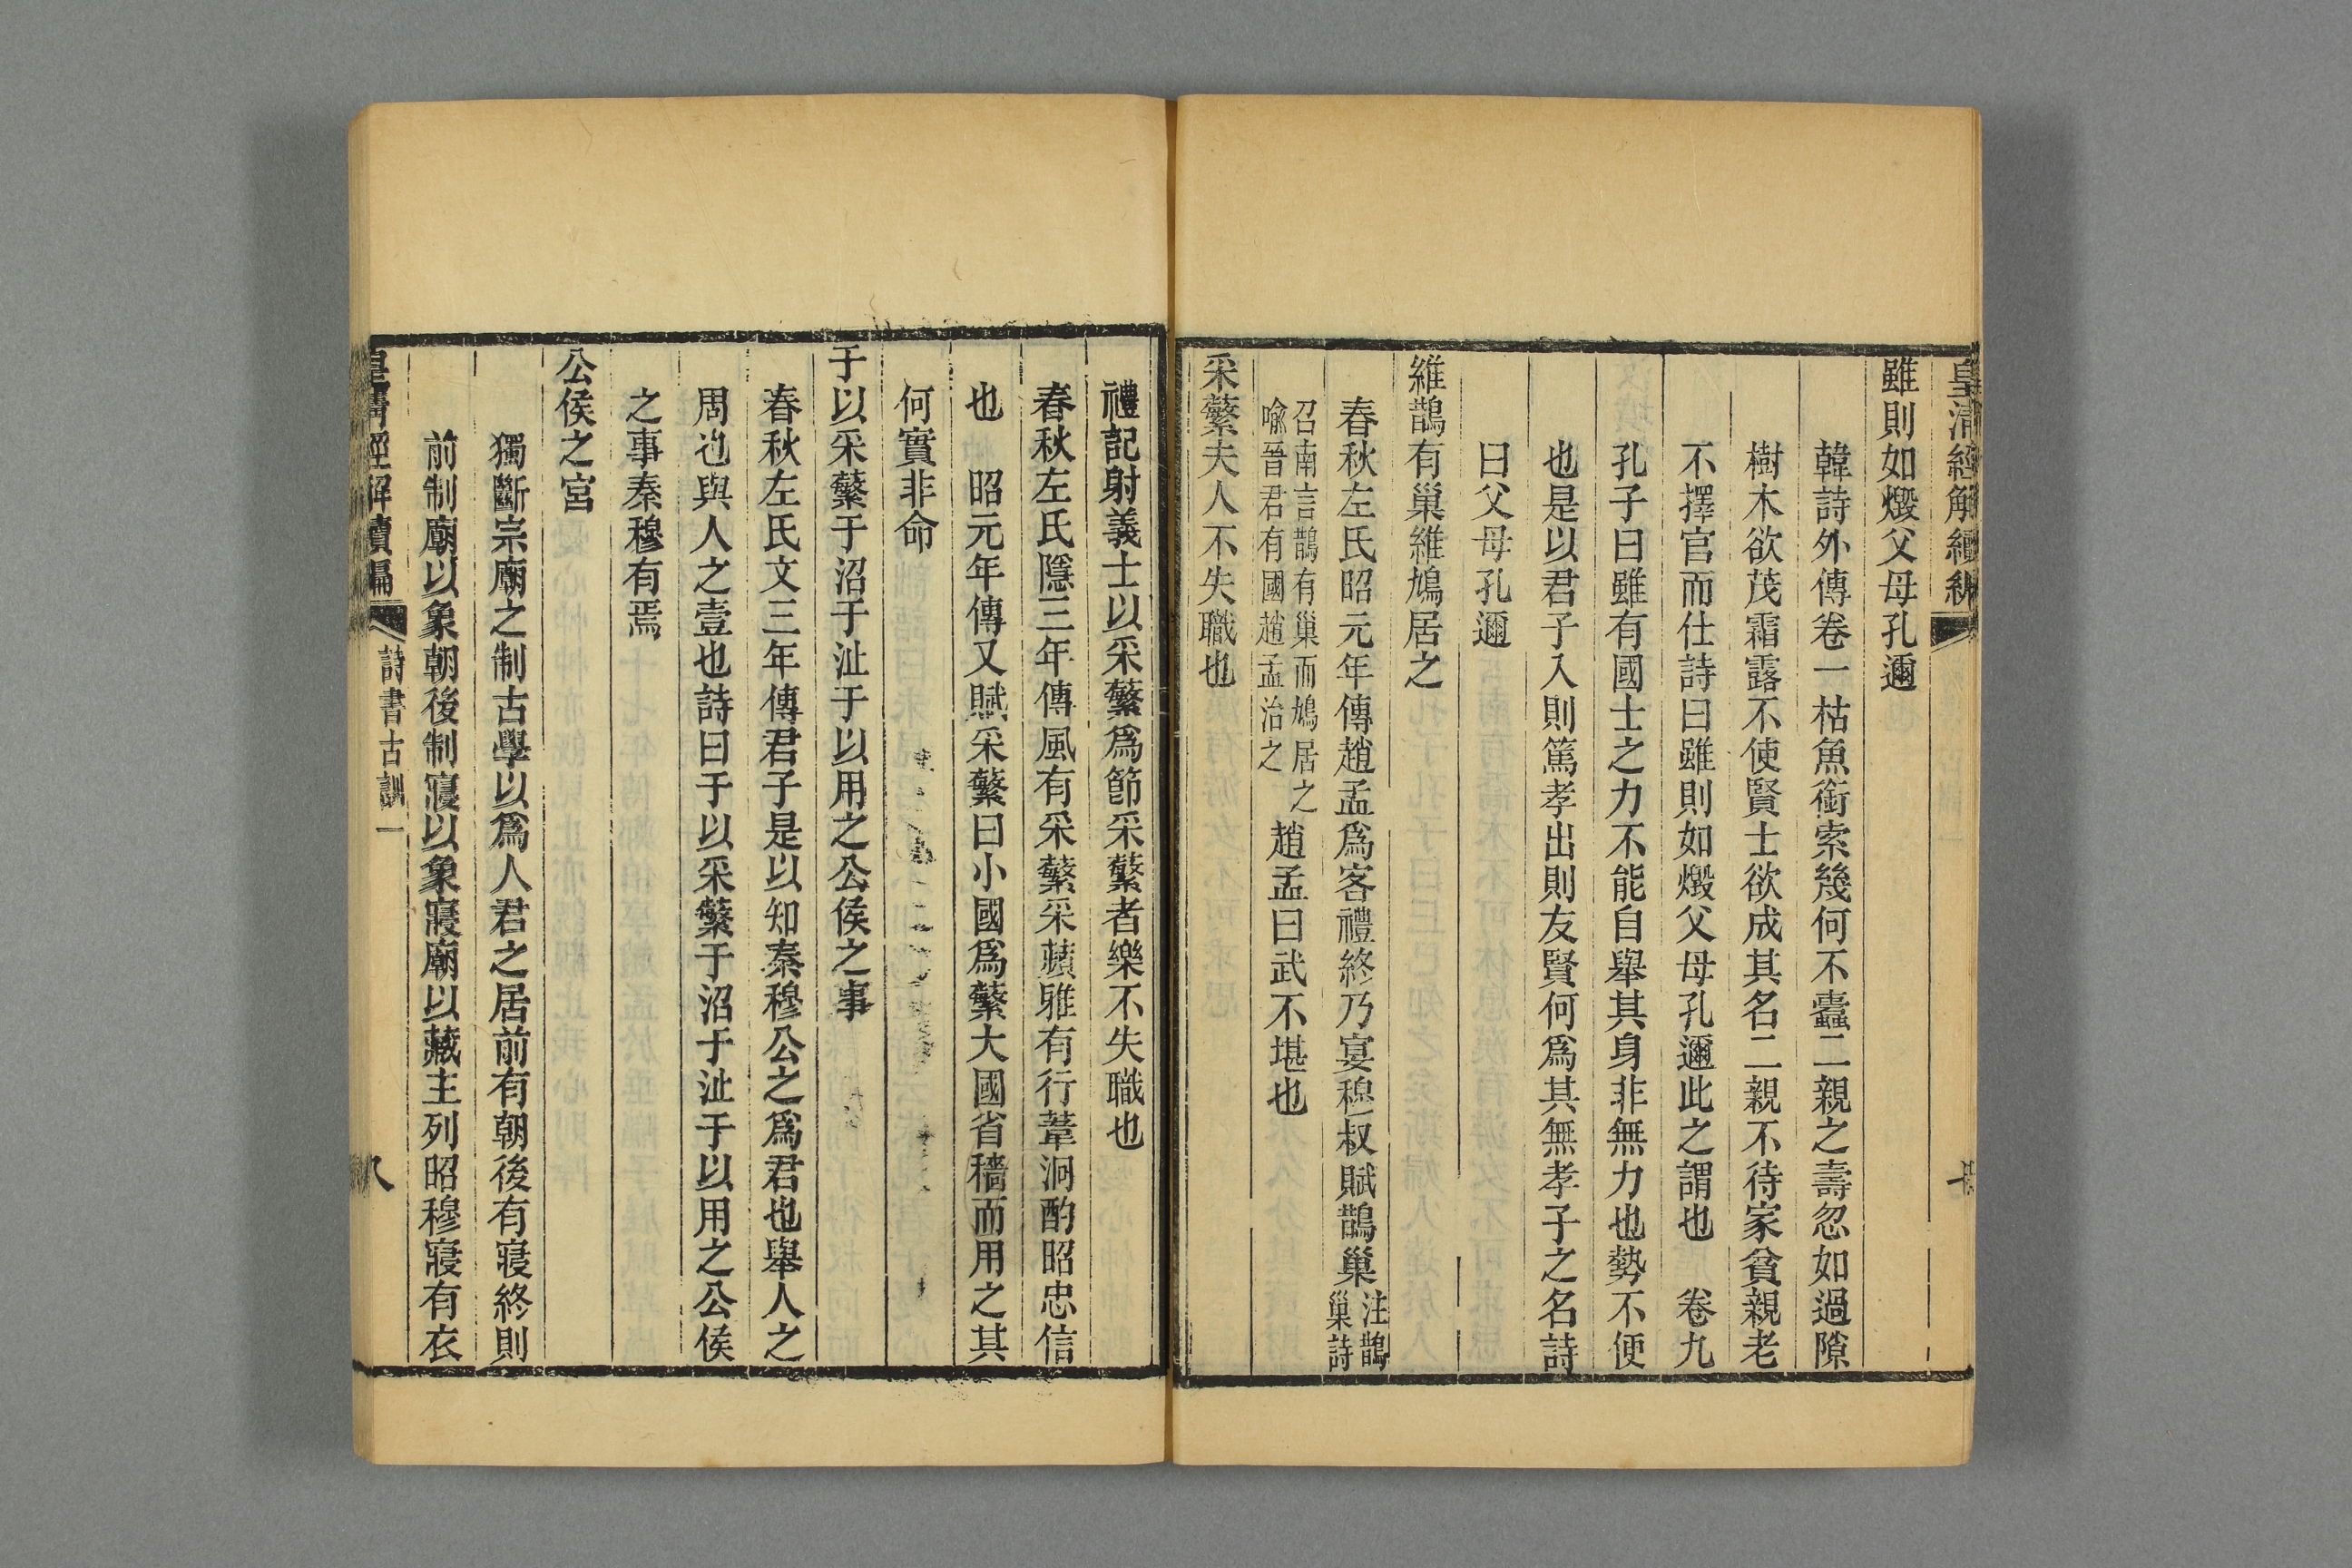 皇清經解續編
雖則如燬父母孔邇
韓詩外傳卷一枯魚銜索幾何不蠹二親之壽忽如過隙
樹木欲茂霜露不使賢士欲成其名二親不待家貧親老
不擇官而仕詩曰雖則如燬父母孔邇此之謂也　卷九
孔子曰雖有國士之力不能自舉其身非無力也勢不便
也是以君子入則篤孝出則友賢何爲其無孝子之名詩
曰父母孔邇
維鵲有巢維鳩居之
春秋左氏昭元年傳趙孟爲客禮終乃宴穆叔賦鵲巢注鵲巢詩
召南言鵲有巢而鳩居之喻晉君有國趙孟治之趙孟曰武不堪也
采蘩夫人不失職也
禮記射義士以采蘩爲節采蘩者樂不失職也
春秋左氏隱三年傳風有采蘩采蘋雅有行葦泂酌昭忠信
也　昭元年傳又賦采蘩曰小國爲蘩大國省穡而用之其
何實非命
于以采蘩于沼于沚于以用之公侯之事
春秋左氏文三年傳君子是以知秦穆公之爲君也舉人之
周也與人之壹也詩曰于以采蘩于沼于沚于以用之公侯
之事秦穆有焉
公侯之宮
獨斷宗廟之制古學以爲人君之居前有朝後有寢終則
前制廟以象朝後制寢以象寢廟以藏主列昭穆寢有衣
皇清經解續編　詩書古訓一　八